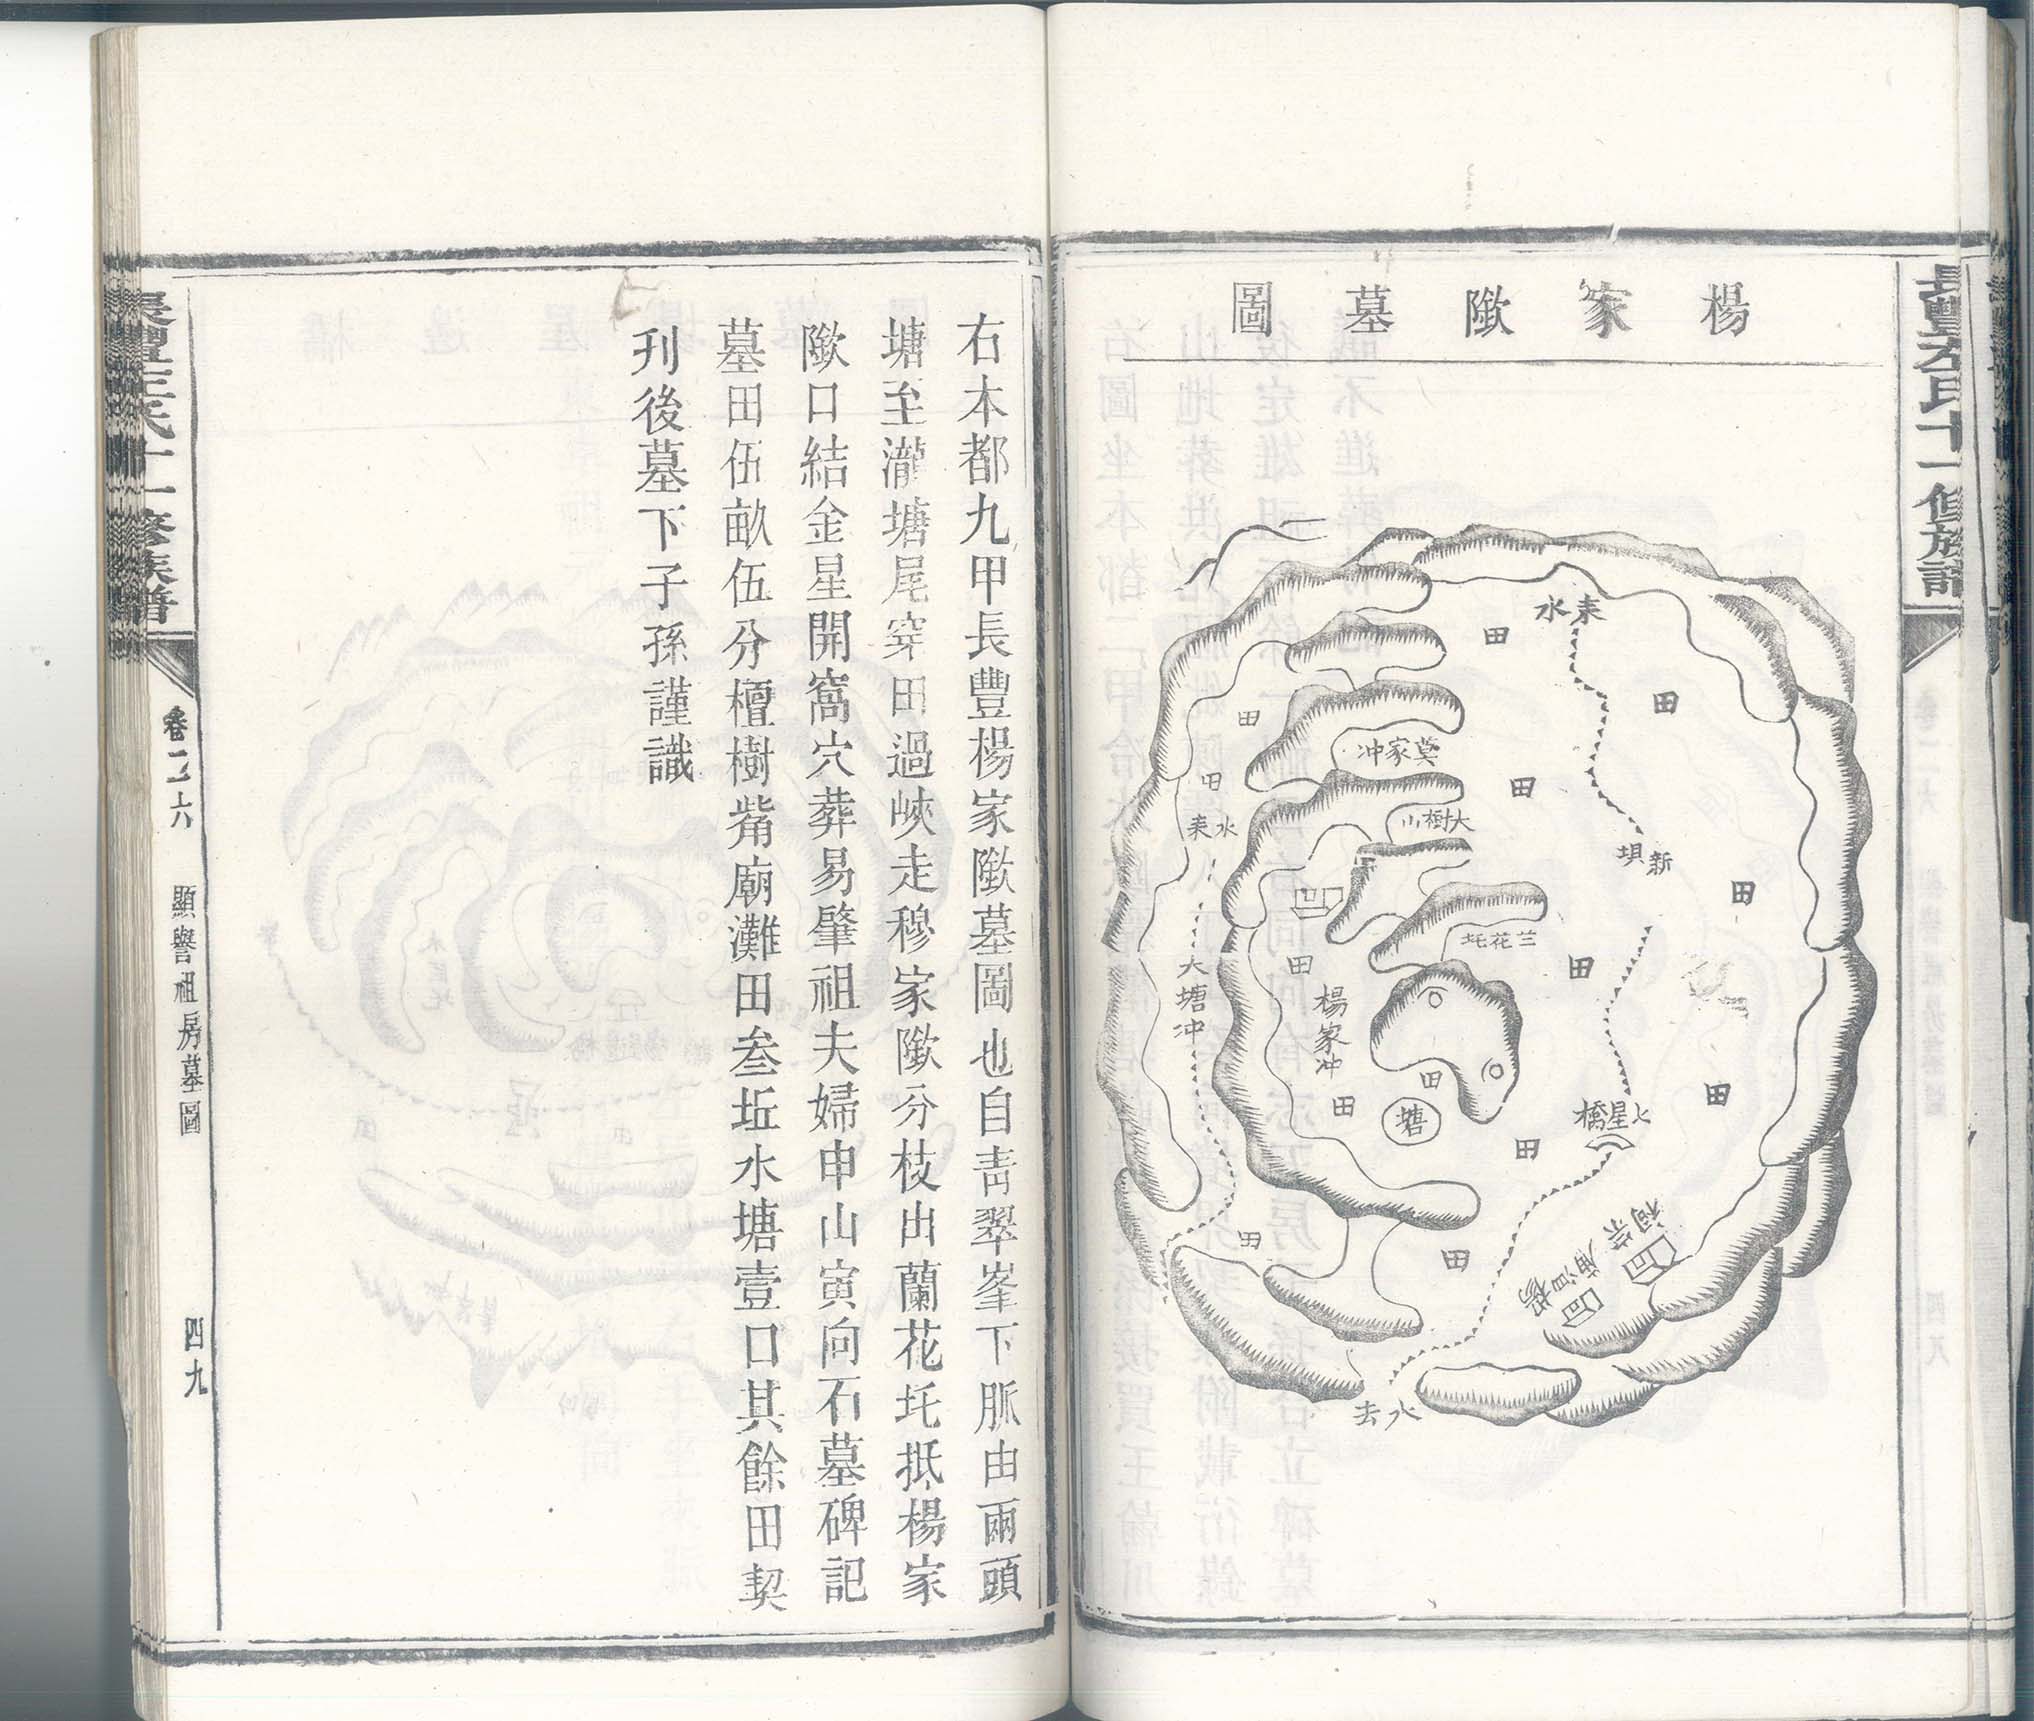 長豐左氏十一修族譜
楊家㘅墓圖
來水
田
田
田
田
莫家冲
田
大樹山
水來
新垻
田
兰花圫
田
田
大塘冲
楊家冲
田
田
田
塘
七星橋
田
田
田
祠宗
廟
水去
右本都九甲長豐楊家㘅墓圖也自青翠峯下脈由兩頭
塘至瀧塘尾穿田過峽走穆家㘅分枝出蘭花圫抵楊家
㘅口結金星開窩穴葬易肇祖夫婦申山寅向石墓碑記
墓田伍畝伍分檀樹觜廟灘田叁坵水塘壹口其餘田契
刋後墓下子孫謹識
十一修族譜
卷二六
顯譽祖房墓圖
四九